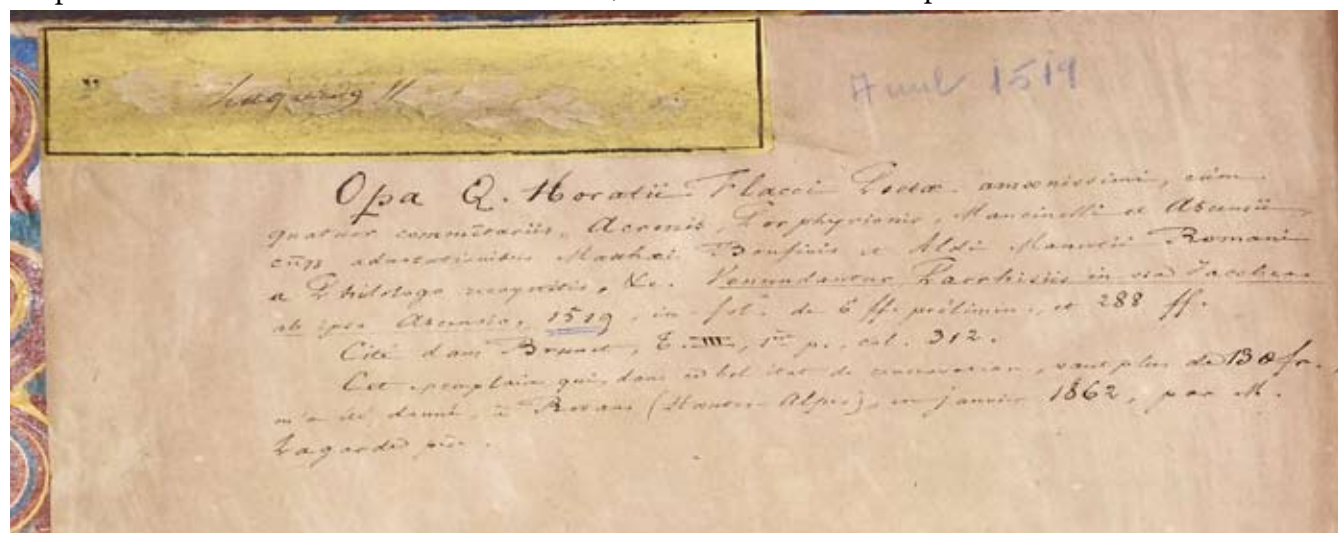 1519
Opa Q. Horatii Flacci Poetæ amœnissimi, cùm
quatuor commētariis, Acronis, Porphyrionis, Mancinelli et Ascensii
adnotationibus Matthæi Bonfinis et Aldi Manutii Romani
a Philologo recognitis, &c. Venundantur Parrhisiis in via Jacobæa
ab ipso Ascensio, 1519, in-fol. de 6 ff. prélimin., et 288 ff.
Cité dans Brunet, T. III, 1re p., col. 312.
Cet exemplaire qui, dans ce bel état de conservation, vaut plus de 130 fr.,
m'a été donné, à Rosans (Hautes-Alpes), en janvier 1862, par M.
Lagarde père.